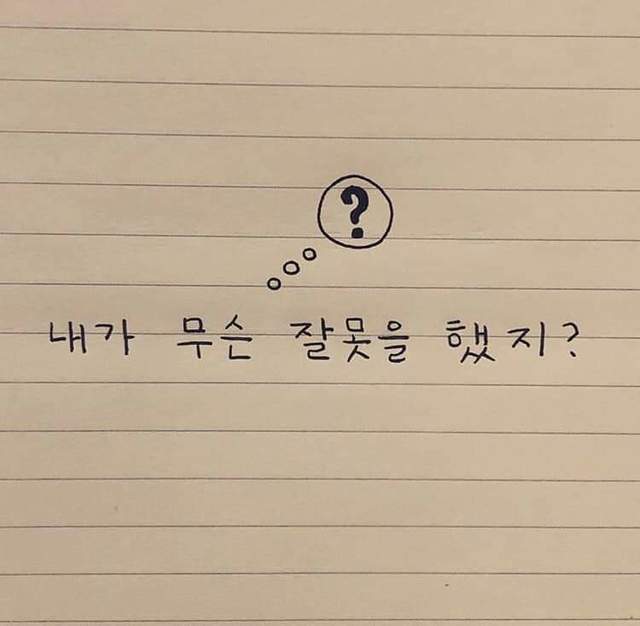 ?
내가 무슨 잘못을 했지?